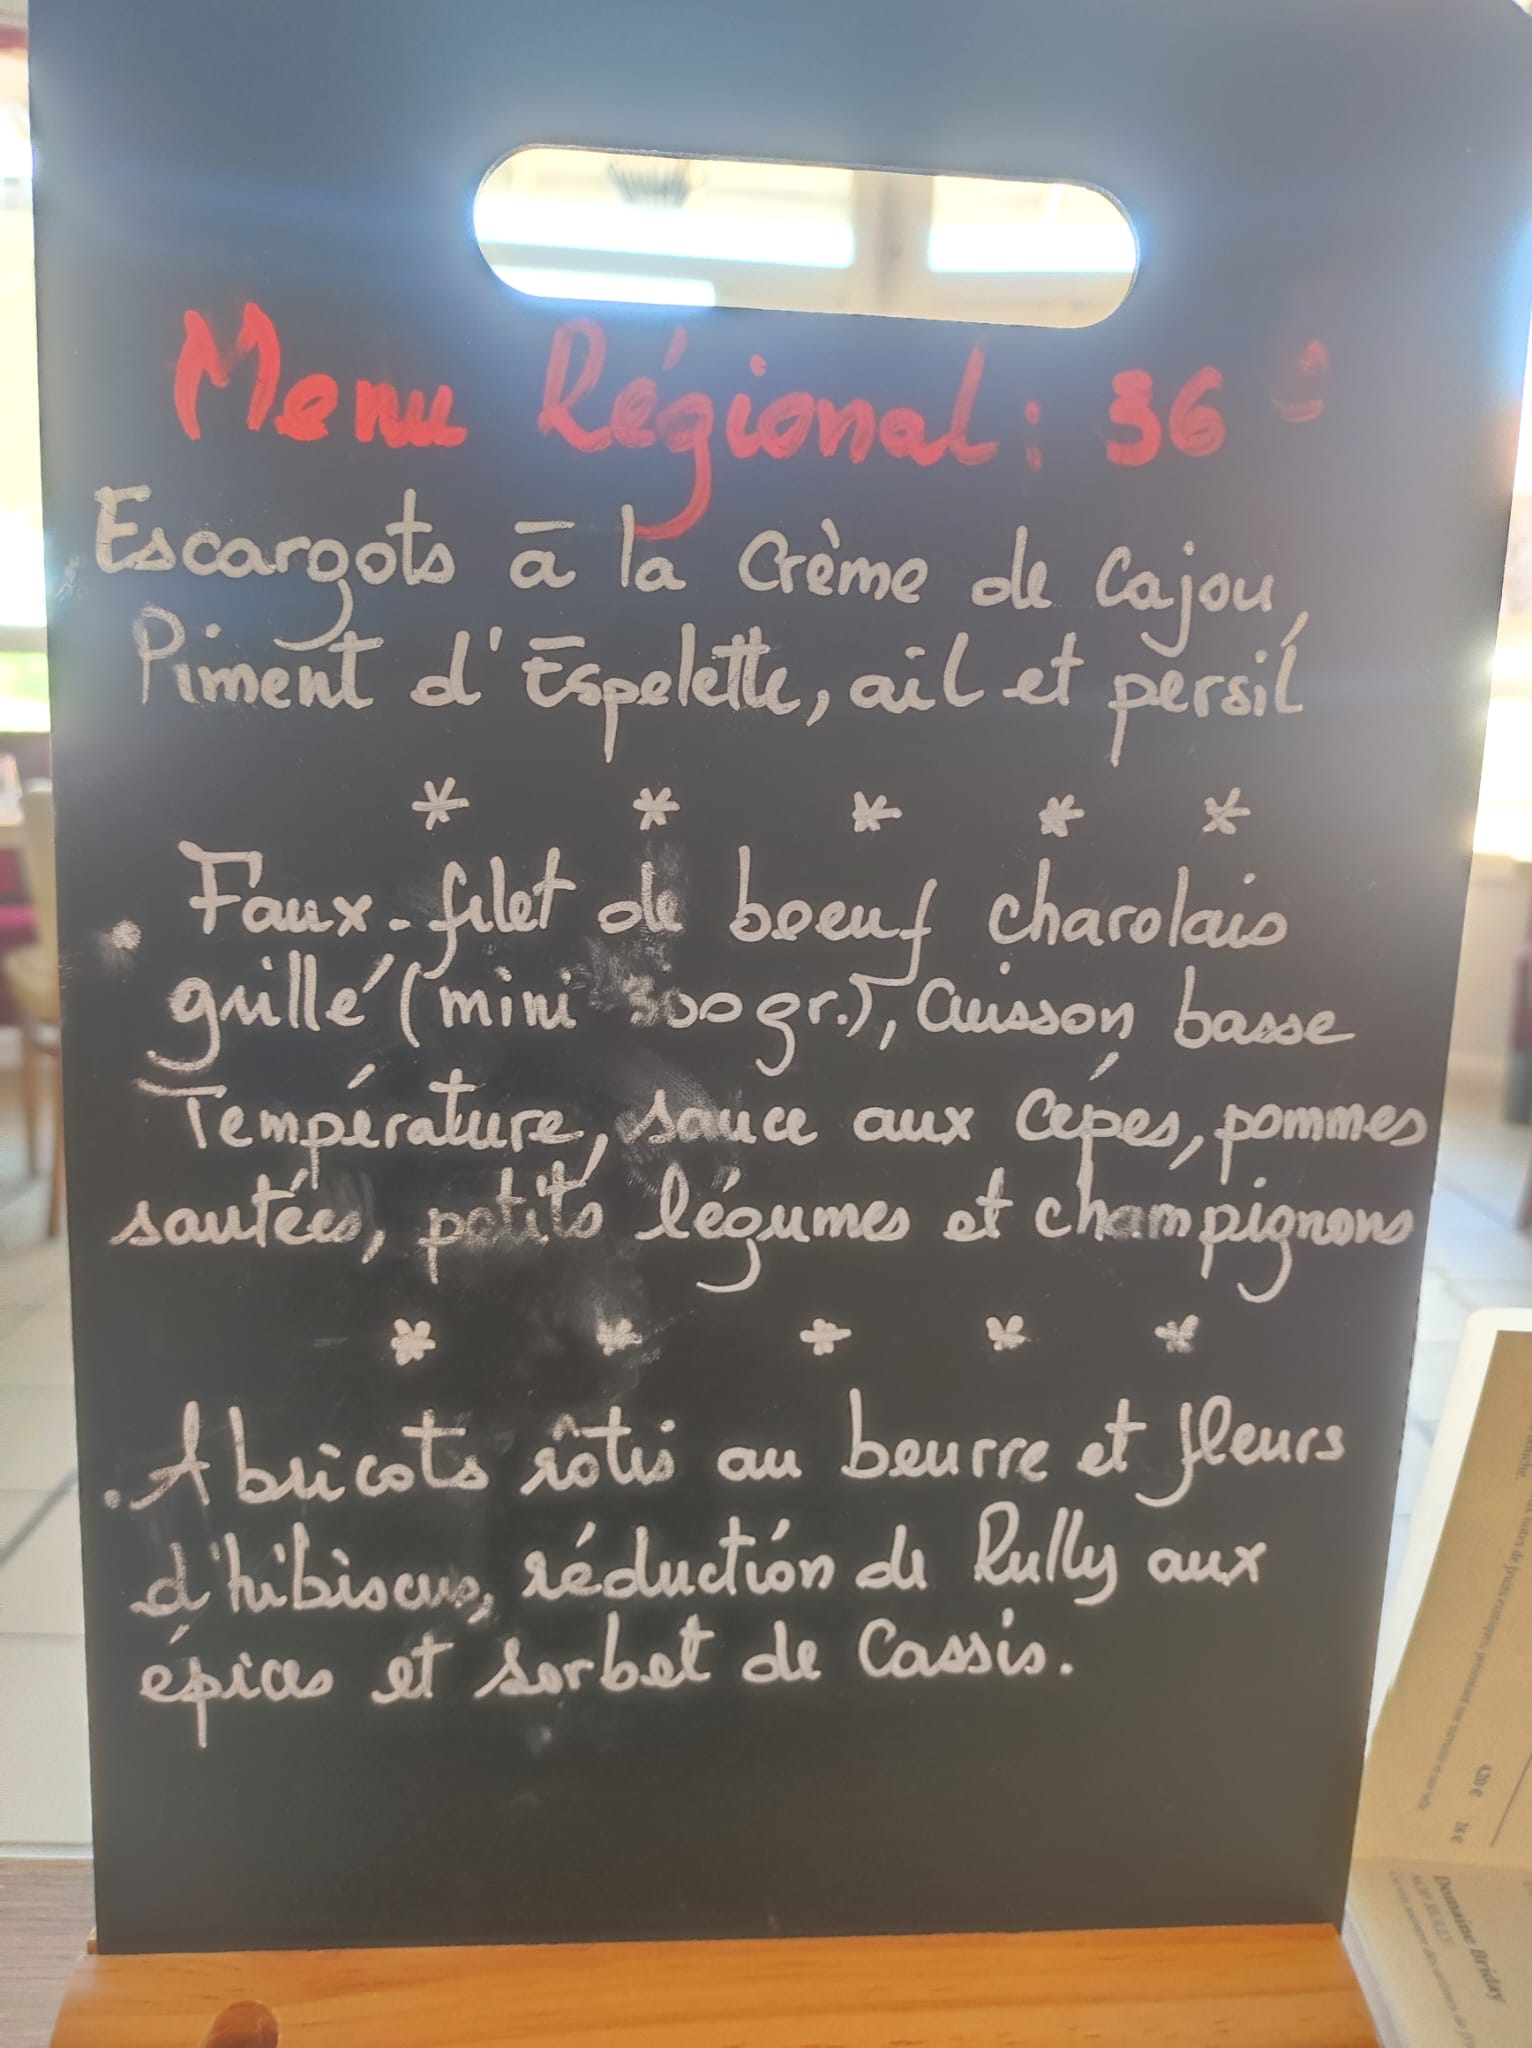 Menu Régional : 36
Escargots à la Crème de Cajou,
Piment d'Espelette, ail et persil
* * * * *
Faux-filet de boeuf charolais
grillé (mini 300gr.), Cuisson basse
Température, sauce aux Cépes, pommes
sautées, petits légumes et champignons
* * * * *
Abricots rôtis au beurre et fleurs
d'hibiscus, réduction de Rully aux
épices et sorbet de Cassis.
4,20 €
Domaine Briday